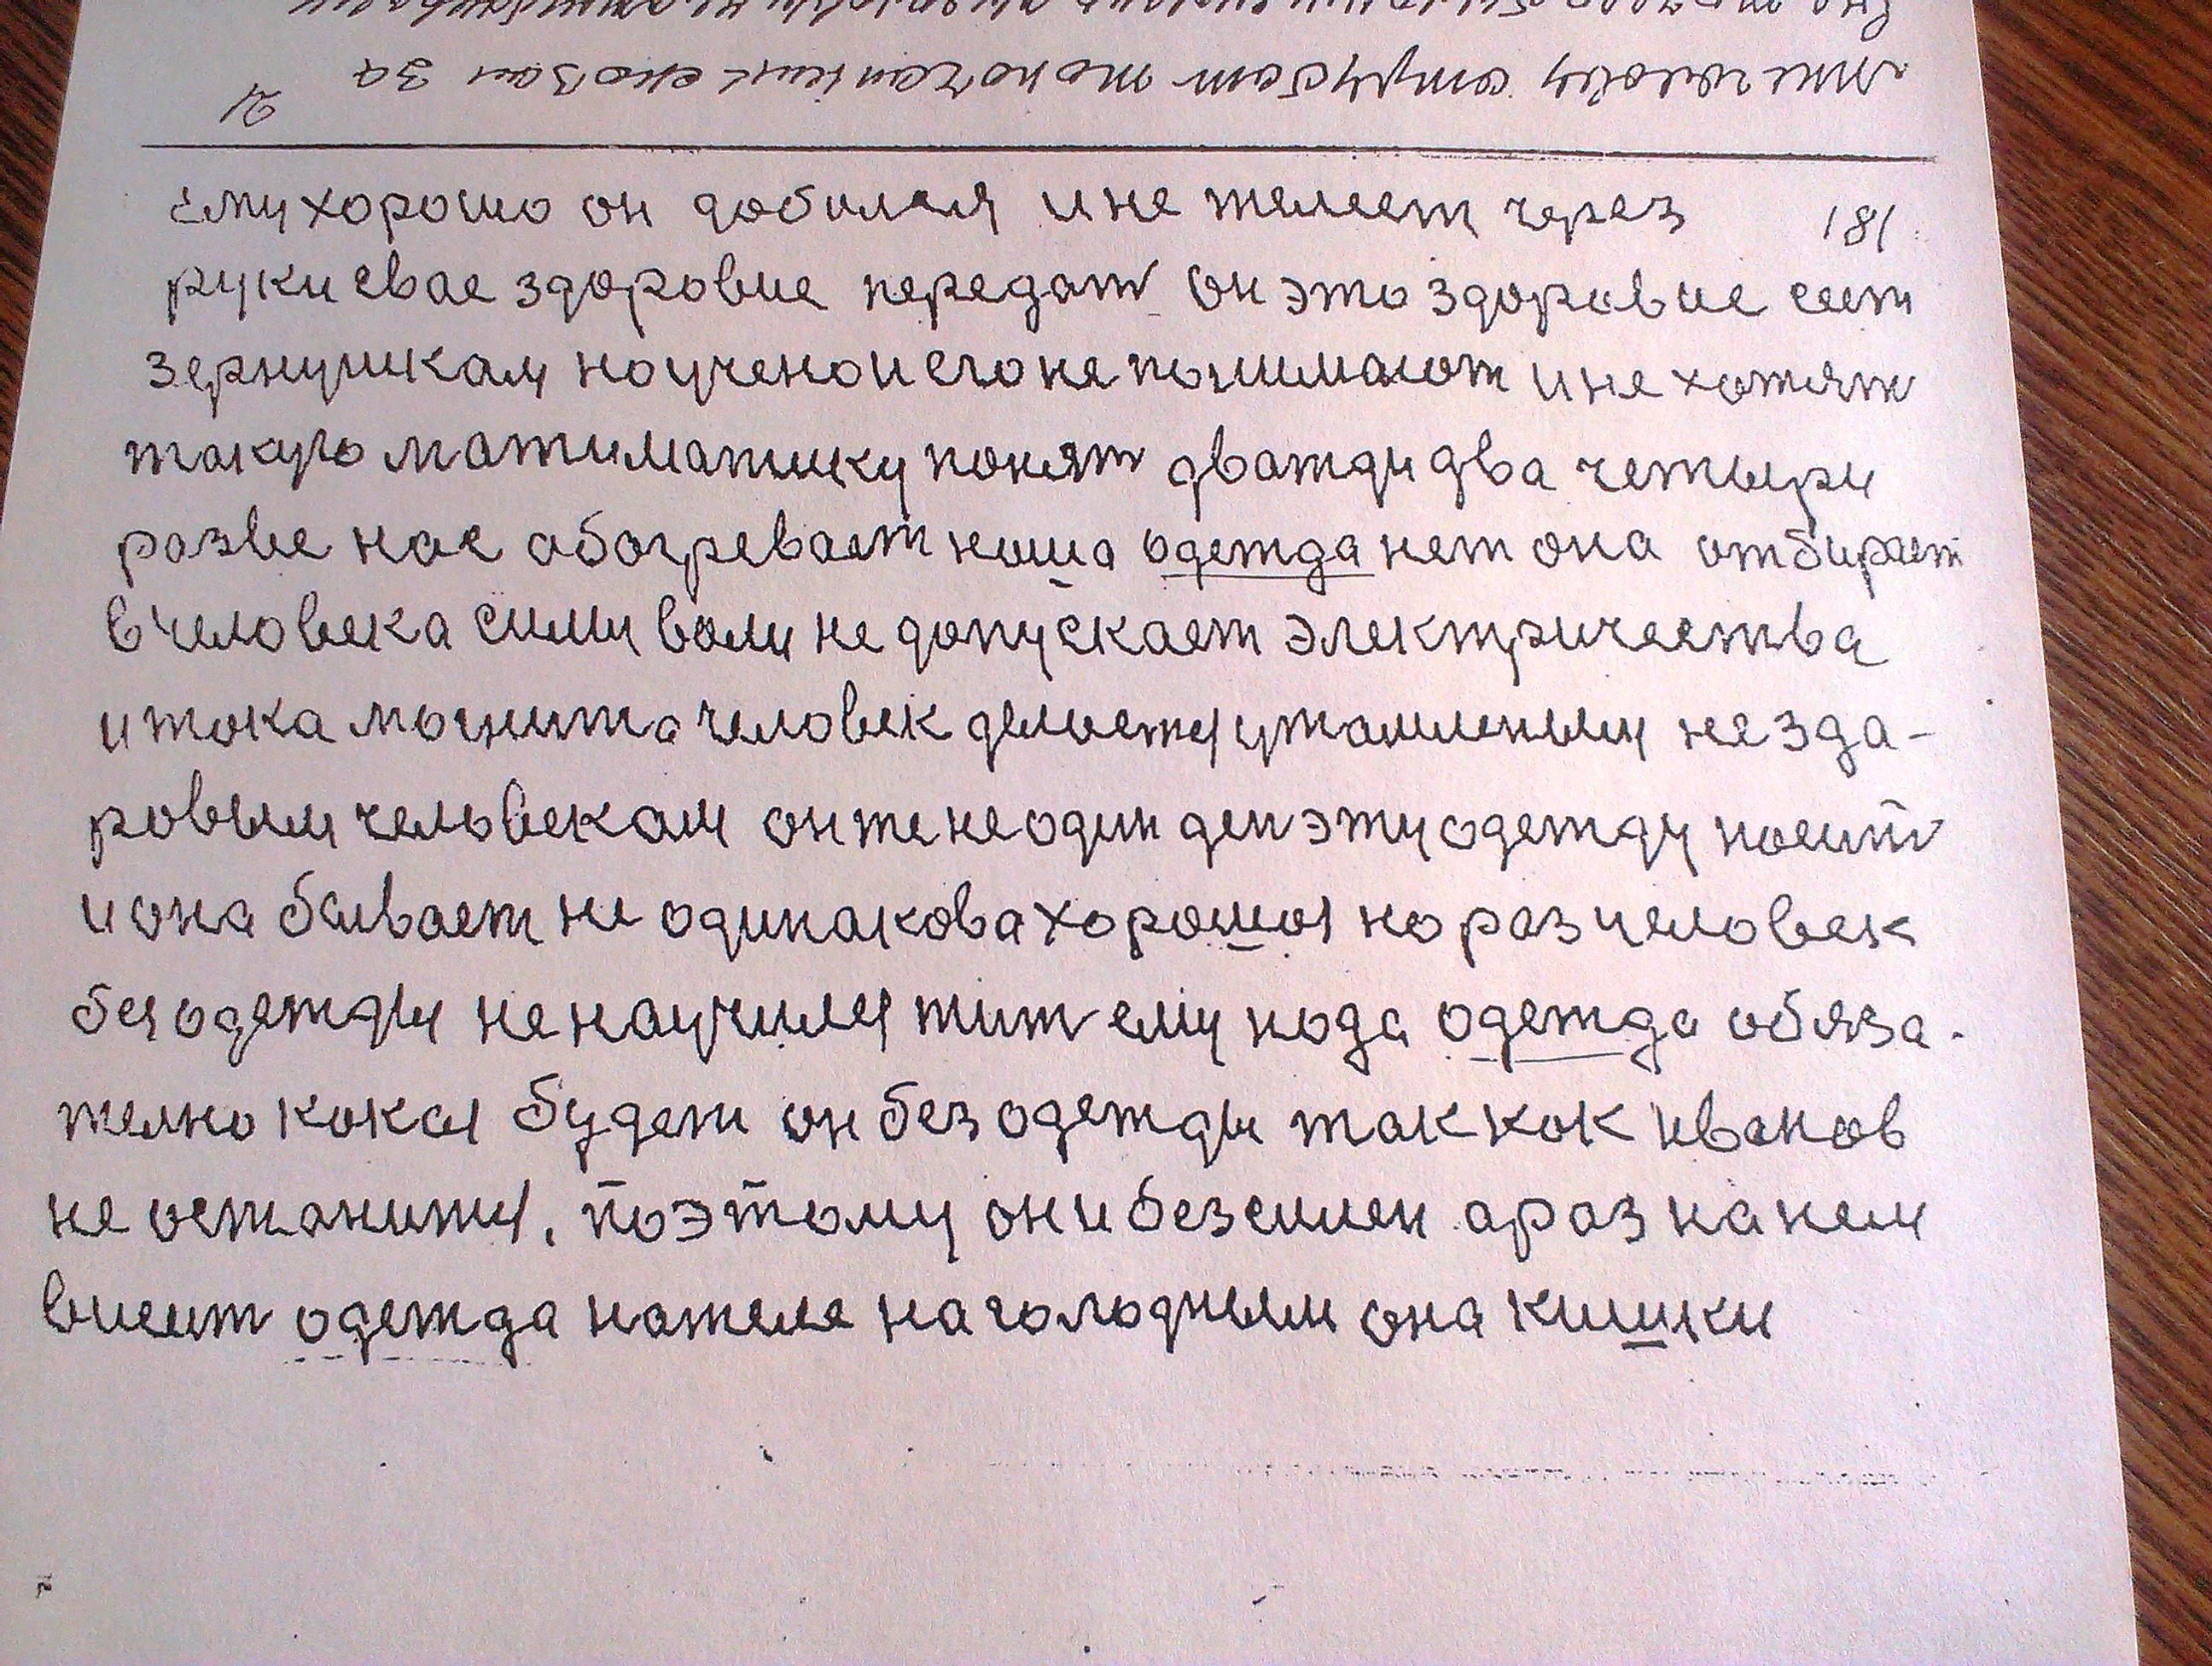 ему хорошо он добился и не желеет через
181
руки свае здоровие передат он это здоровие сеет
зернушкам но ученои его не понимают и не хотят
такую матиматику понят дважди два четыри
разве нас обогревает наша одежда нет она отбирает
в человека сили воли не допускает электричества
и тока могнита человек делается утомленным не зда-
ровым человекам он же не один ден эту одежду носит
и она бывает не одинакова хорошоя но раз человек
без одежды не научился жит ему нада одежда обяза-
телно какая будет он без одежды так как иванов
не останится. поэтому он и безсилен а раз на нем
висит одежда на теле на голодным она кишки